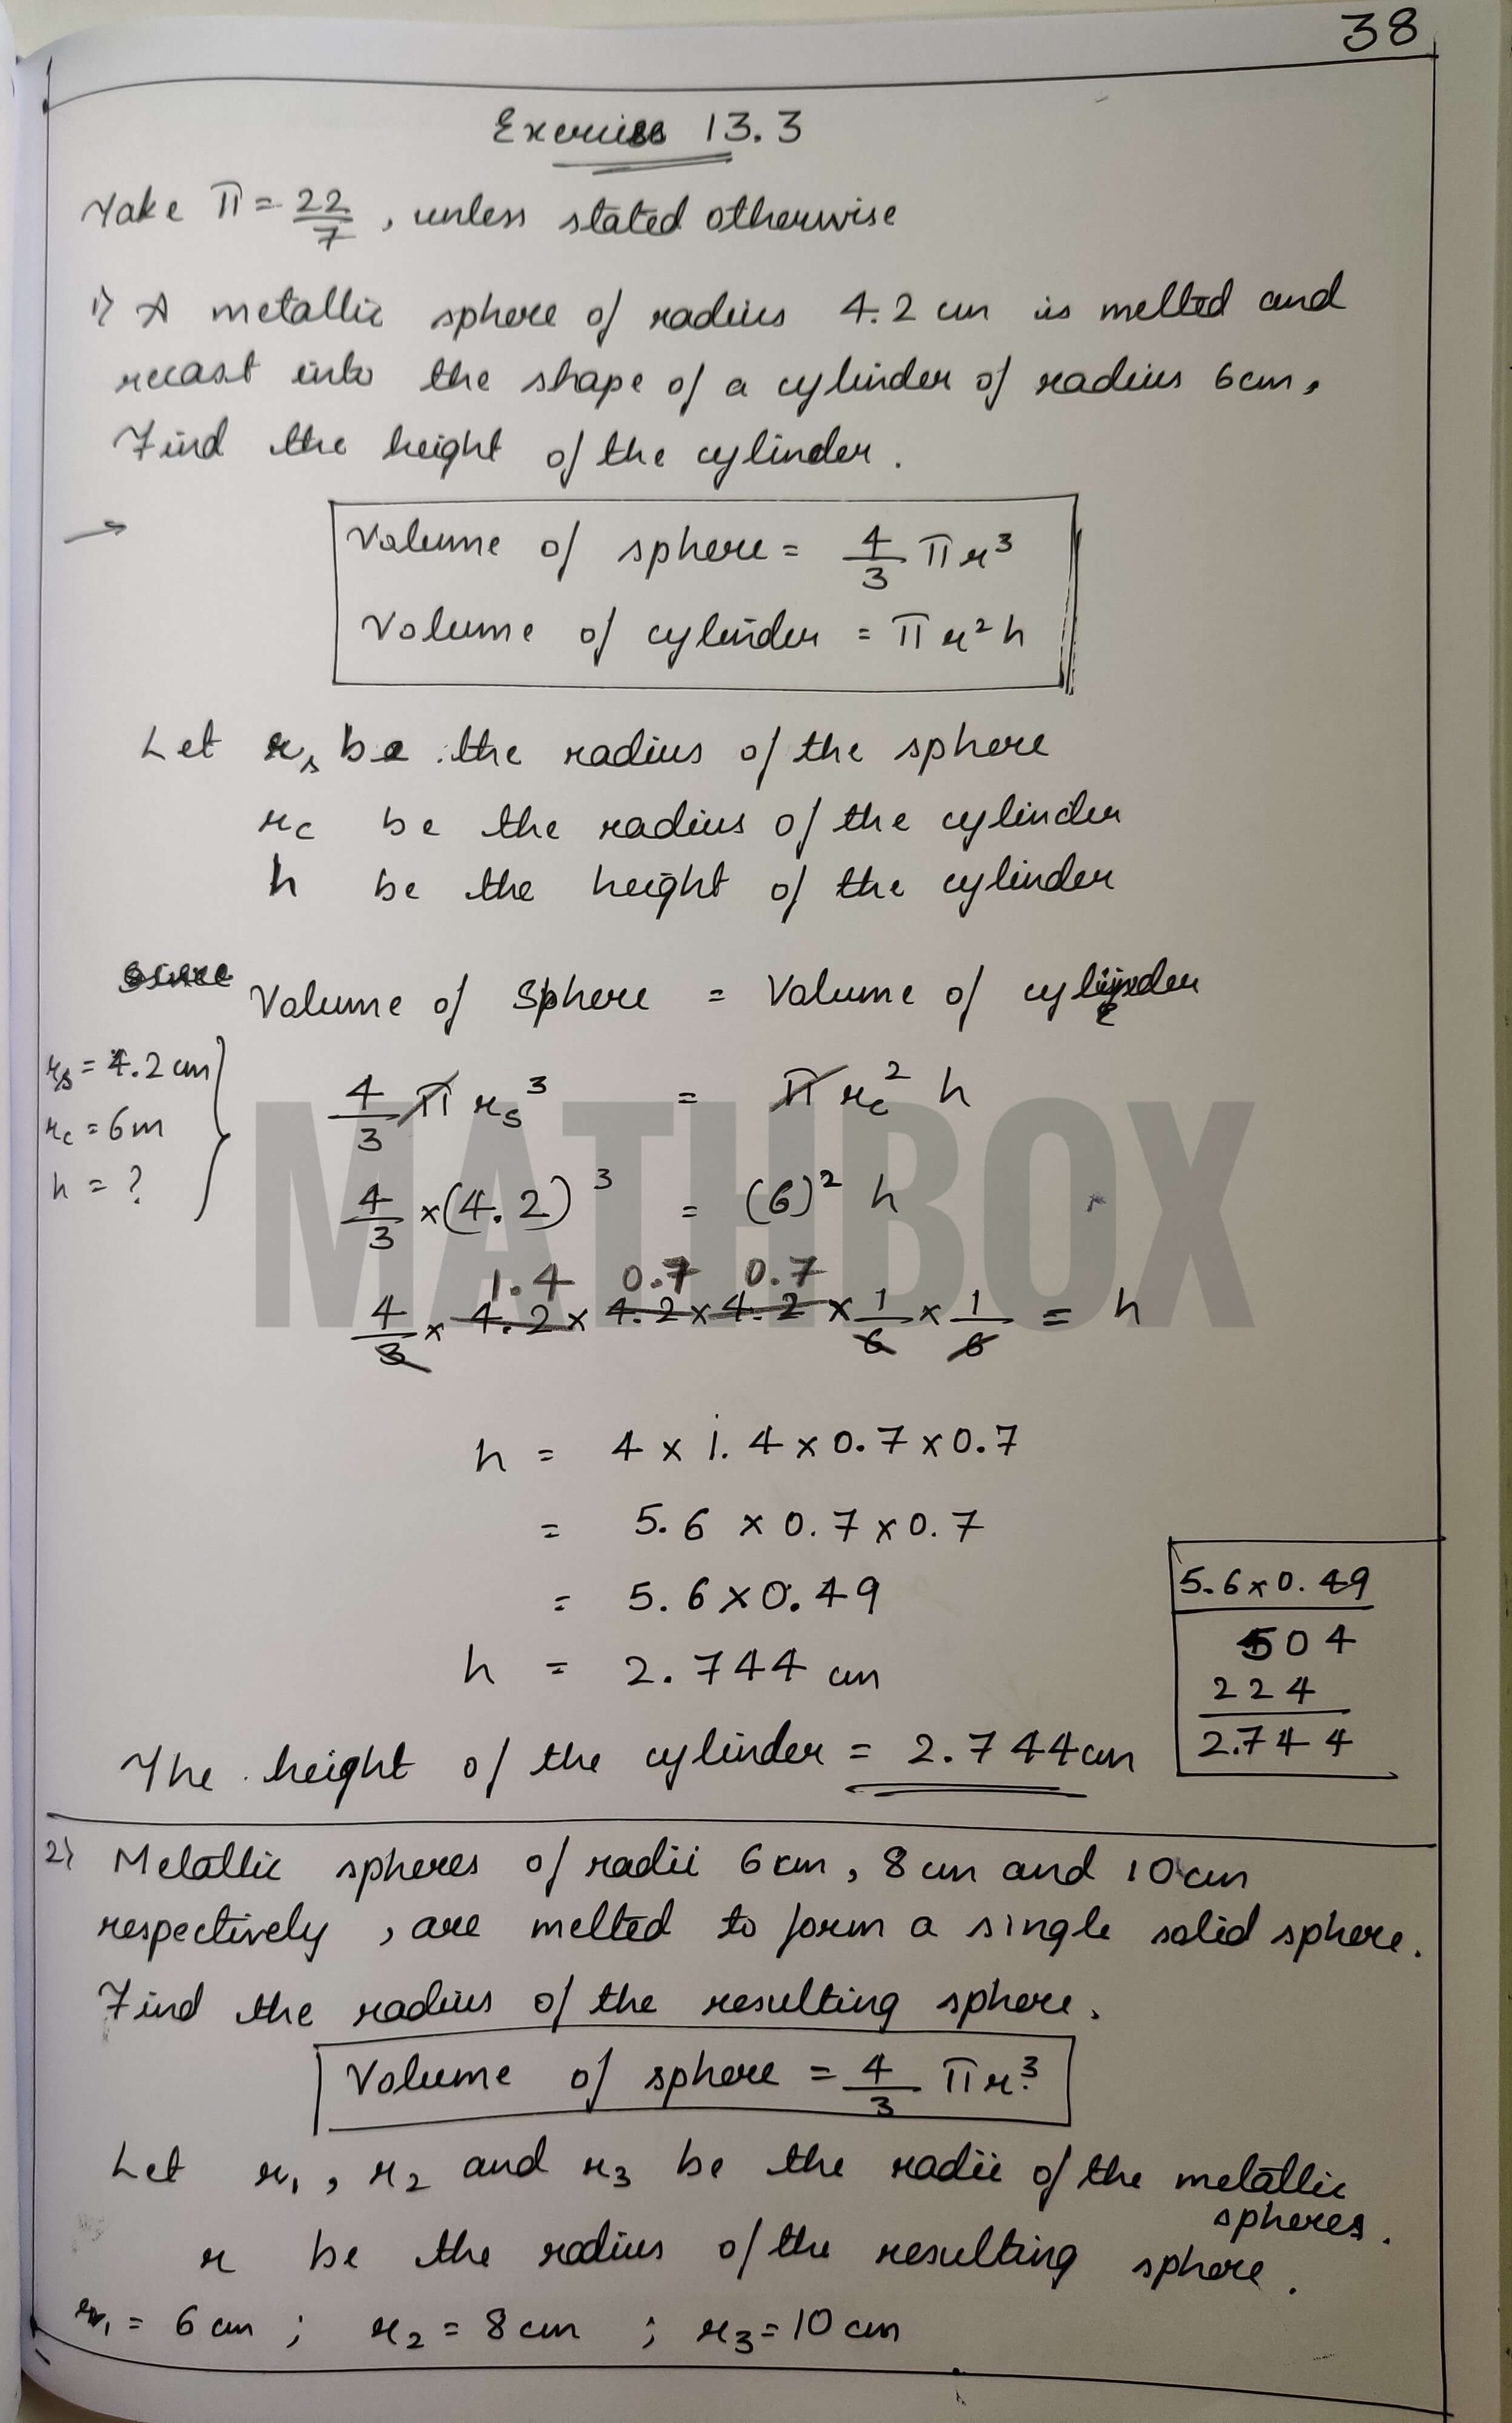 38
Exercise 13.3
Take π = 22/7, unless stated otherwise
1) A metallic sphere of radius 4.2 cm is melted and
recast into the shape of a cylinder of radius 6cm,
Find the height of the cylinder.
→
Volume of sphere = 4/3 πr³
Volume of cylinder = πr²h
Let rₛ be the radius of the sphere
r_c be the radius of the cylinder
h be the height of the cylinder
Volume of Sphere = Volume of cylinder
rₛ = 4.2 cm
r_c = 6m
h = ?
4/3 π rₛ³ = π r_c² h
4/3 × (4.2)³ = (6)² h
1.4 0.7 0.7
4/3 × 4.2 × 4.2 × 4.2 × 1/6 × 1/6 = h
h = 4 × 1.4 × 0.7 × 0.7
= 5.6 × 0.7 × 0.7
= 5.6 × 0.49
h = 2.744 cm
5.6 × 0.49
504
224
2.744
The height of the cylinder = 2.744cm
2) Metallic spheres of radii 6 cm, 8 cm and 10 cm
respectively, are melted to form a single solid sphere.
Find the radius of the resulting sphere.
Volume of sphere = 4/3 πr³.
Let r₁, r₂ and r₃ be the radii of the metallic
spheres.
r be the radius of the resulting sphere.
r₁ = 6 cm ; r₂ = 8 cm ; r₃ = 10 cm
MATHBOX